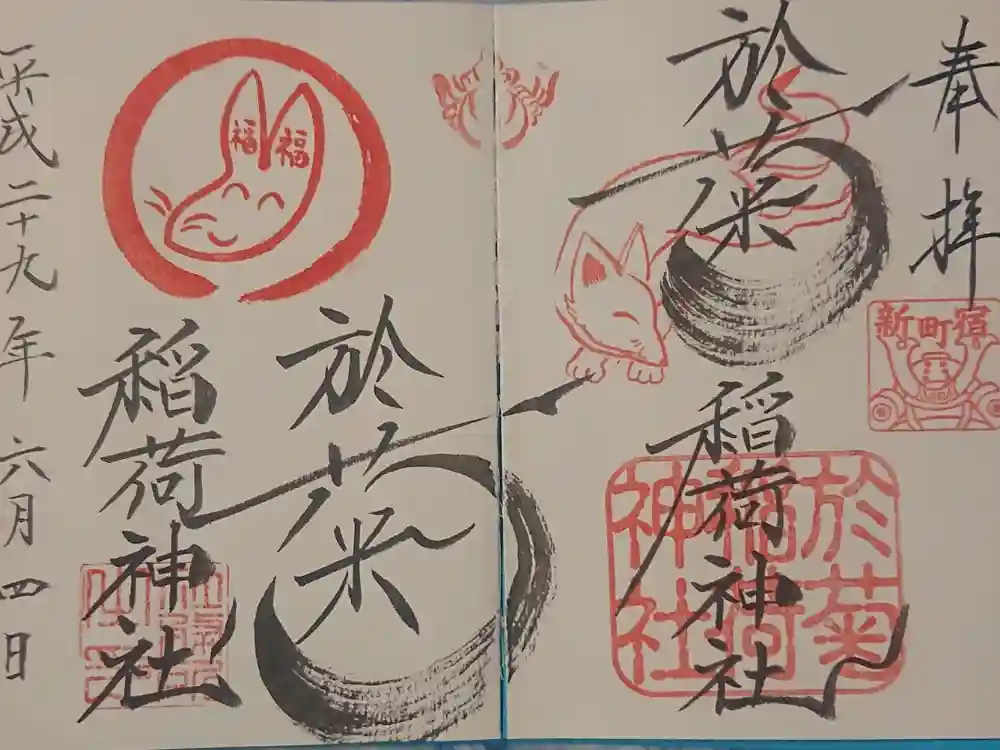 奉拝
新町宿
於菊
稲荷神社
於菊
稲荷
神社
於菊
稲荷神社
福
福
平成二十九年六月四日